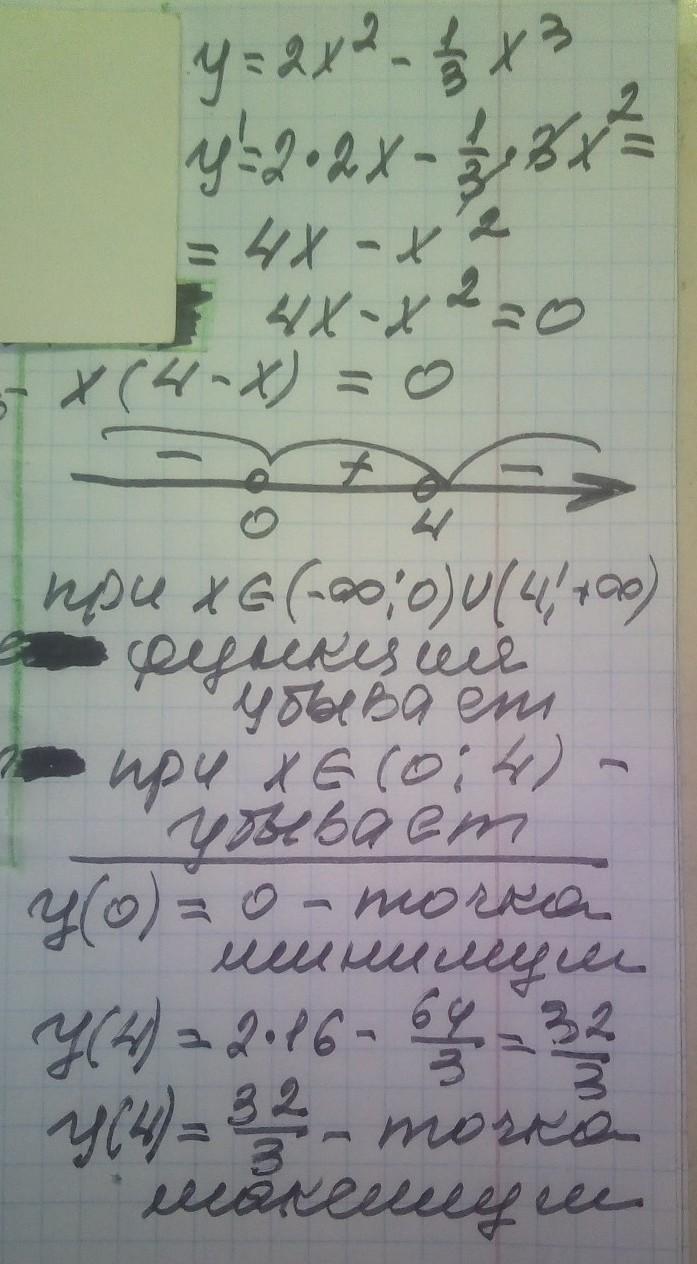 y = 2x² - 1/3 x³
y' = 2·2x - 1/3·3x² =
= 4x - x²
4x - x² = 0
x(4 - x) = 0
- + -
0 4
при x∈(-∞;0)∪(4;+∞)
функция
убывает
при x∈(0;4) -
убывает
y(0) = 0 - точка
минимум
y(4) = 2·16 - 64/3 = 32/3
y(4) = 32/3 - точка
максимум